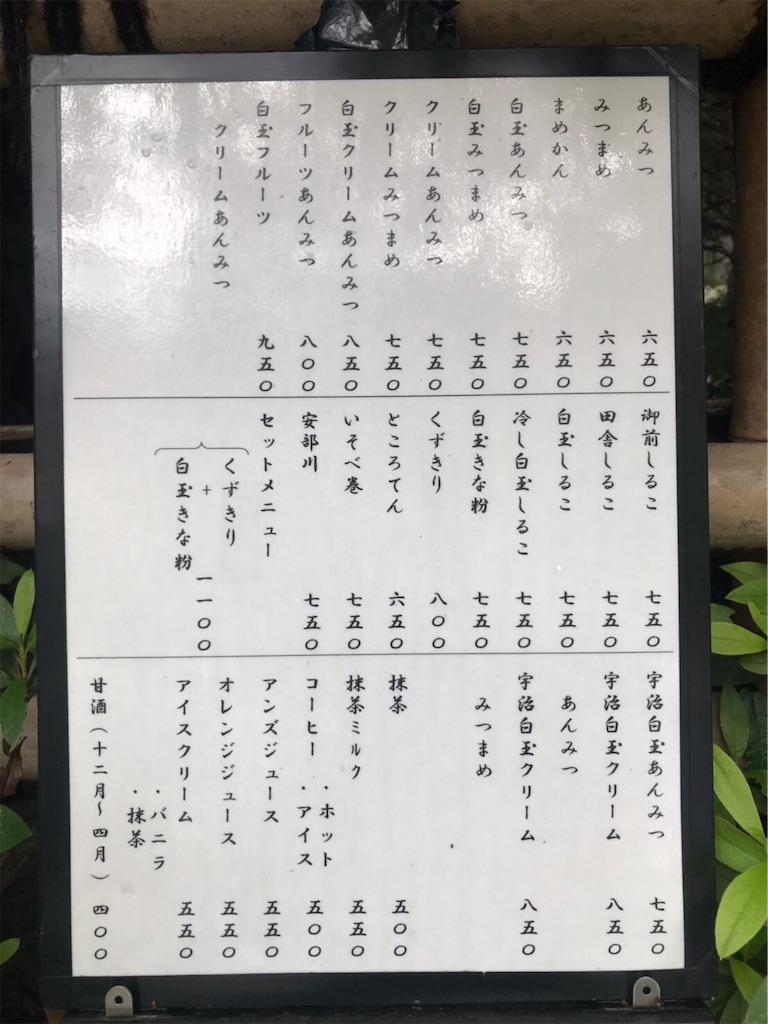 あんみつ 六五〇
みつまめ 六五〇
まめかん 六五〇
白玉あんみつ 七五〇
白玉みつまめ 七五〇
クリームあんみつ 七五〇
クリームみつまめ 七五〇
白玉クリームあんみつ 八五〇
フルーツあんみつ 八〇〇
白玉フルーツ
クリームあんみつ 九五〇
御前しるこ 七五〇
田舎しるこ 七五〇
白玉しるこ 七五〇
冷し白玉しるこ 七五〇
白玉きな粉 七五〇
くずきり 八〇〇
ところてん 六五〇
いそべ巻 七五〇
安部川 七五〇
セットメニュー
くずきり
+
白玉きな粉 一一〇〇
宇治白玉あんみつ 七五〇
宇治白玉クリーム
あんみつ 八五〇
宇治白玉クリーム
みつまめ 八五〇
抹茶 五〇〇
抹茶ミルク 五五〇
コーヒー ・ホット
・アイス 五〇〇
アンズジュース 五五〇
オレンジジュース 五五〇
アイスクリーム 五五〇
・バニラ
・抹茶
甘酒(十二月〜四月) 四〇〇